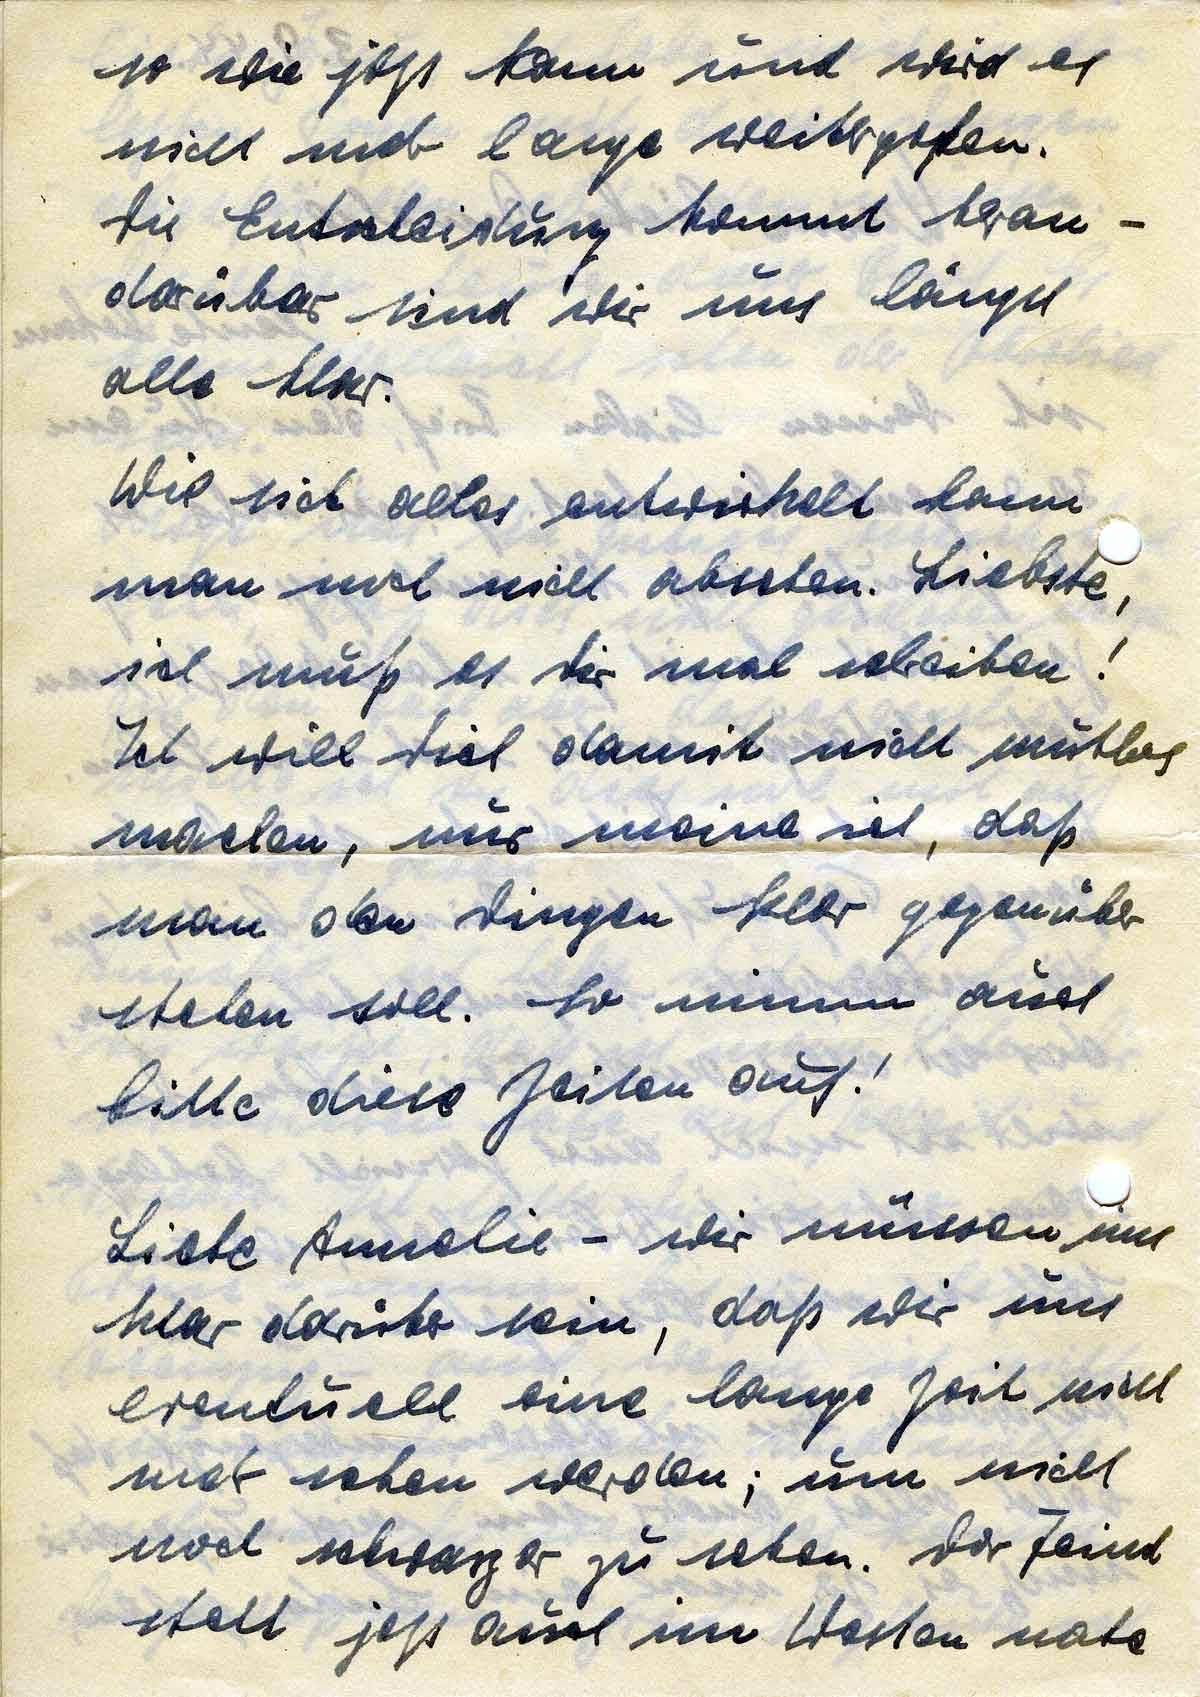 so wie jetzt kann und wird es
nicht mehr lange weitergehen.
Die Entscheidung kommt heran -
darüber sind wir uns längst
alle klar.
Wie sich alles entwickelt kann
man noch nicht absehen. Liebste,
ich muß es Dir mal schreiben!
Ich will Dich damit nicht mutlos
machen, nur meine ich, daß
man den Dingen klar gegenüber
stehen soll. So nimm auch
bitte diese Zeilen auf!
Liebe Annelie - wir müssen uns
klar darüber sein, daß wir uns
eventuell eine lange Zeit nicht
mehr sehen werden; um nicht
noch schwarzer zu sehen. Der Feind
steht jetzt auch im Westen nahe